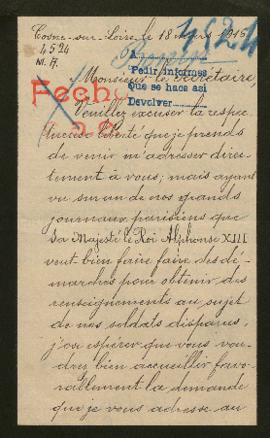 Cosne-sur-Loire, le 18 1915
4524
M. A.
4524
A
Pedir informes
Que se hace así
Devolver
Fecha
Monsieur le Secrétaire,
Veuillez excuser la respec
tueuse liberté que je prends
de venir m'adresser direc
tement à vous; mais ayant
vu un de nos grands
journaux parisiens que
Sa Majesté le Roi Alphonse XIII
veut bien faire faire des dé
marches pour obtenir des
renseignements au sujet
de nos soldats disparus,
j'ose espérer que vous vou
drez bien accueillir favo
rablement la demande
que je vous adresse au